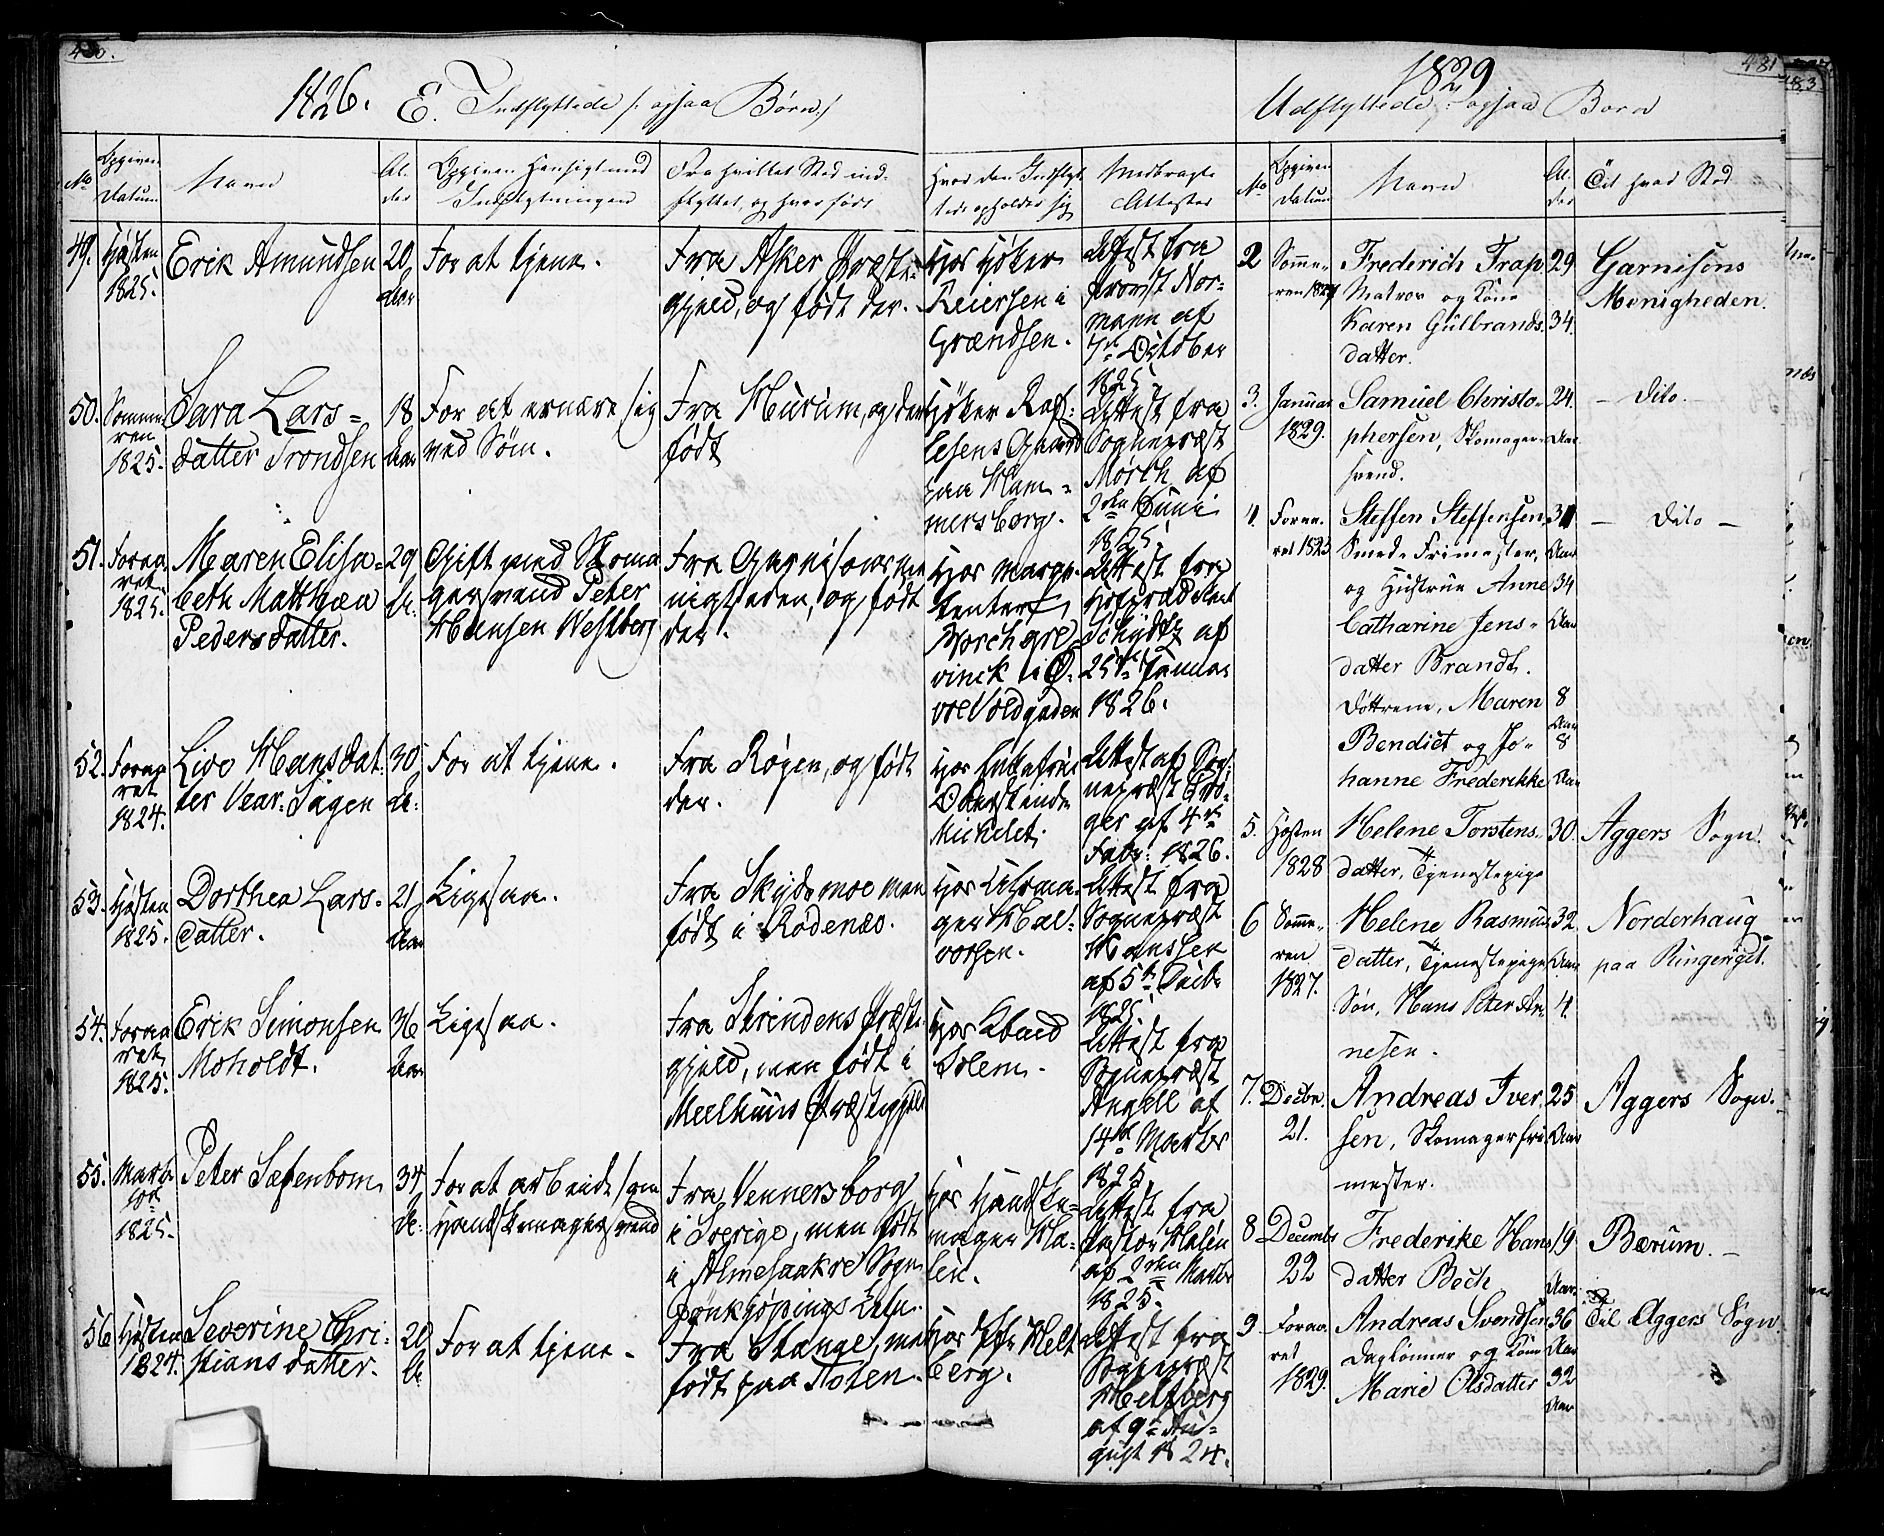 480.
1826. E. Indflyttede /: ogsaa Børn :/
No
Opgiven Datum
Navn
Alder
Opgiven Hensigt med Indflytningen
Fra hvilket Sted indflyttet, og hvor født
Hvor den Indflyttede opholder sig
Medbragte Attester
49.
Høsten
1825.
Erik Amundsen
20
Aar
For at tjene.
Fra Asker Præste-
gjeld, og født der.
Hos Høker
Reiersen i
Grændsen.
Attest fra
Provst Nor-
mann af
7de October
1825.
50.
Somme-
ren
1825.
Sara Lars=
datter Trondsen
18
Aar
For at ernære sig
ved Søm.
Fra Hurum, og der
født
Høker
Gaard
paa Ham-
mersborg.
Attest fra
Sognepræst
Mørch af
2den Juni
1825.
51.
Foraa-
ret
1825.
Maren Elisa=
beth Matthea
Pedersdatter.
29
A:
Gift med Skoma
gersvend Peter
Hansen Westberg
Fra Garnisonsme
nigheden, og født
der.
Hos Marque-
tenter
Borchgre-
vinck i Ø-
vre Voldgaden
Attest fra
Schydtz af
25de Januar
1826.
52.
Foraa-
ret
1824.
Live Hansdat-
ter Vear-Sagen
30
A:
For at tjene.
Fra Røgen, og født
der.
Hos Enkefrue
Oberstinde
Michelet.
Attest af Sog-
nepræst
af 4de
Febr: 1826.
53.
Høsten
1825.
Dorthea Lars-
datter.
21
Aar
Ligesaa.
Fra Skydsmoe men
født i Rødenæs.
Hos Uhrma-
ger Hal-
vorsen.
Attest fra
Sognepræst
Hanssen
af 5te Decbr
1825.
54.
Foraa
ret
1825.
Erik Simonsen
Moholdt.
36
Aar
Ligesaa.
Fra Strindens Præste-
gjeld, men født i
Meelhuus Præstegjeld
Hos
Solem.
Attest fra
Sognepræst
Angell af
14de Marts
1825.
55.
Marts
1825.
Peter Sæfenbom
34
A:
For at arbeide som
Handskemagersvend
Fra Vennersborg
i Sverige, men født
i Almesaakre Sogn
Jönkjøpings Lehn.
Hos Handske-
mager Ma-
lin.
Attest fra
Pastor Malin
af 2den Marts
1825.
56
Høsten
1824.
Severine Chri-
stiansdatter.
20
A:
For at tjene.
Fra Stange, men
født paa Toten.
Hos Melt
berg.
Attest fra
Sognepræst
Meltberg
af 9de Au-
gust 1824.
481
1829
Udflyttede, /: ogsaa Børn
No
Opgiven Datum
Navn
Alder
Til hvad Sted
2
Somme-
ren 1827
Frederich Trap
Matros og Kone
Karen Gulbrands-
datter.
29
34.
Garnisons
Menigheden.
3.
Januar
1829.
Samuel Christo-
phersen, Skomager-
svend.
24.
Aar
— Dito. —
4.
Foraa-
ret 1823
Steffen Steffensen,
Smede Frimester,
og Hustrue Anne
Catharine Jens-
datter Brandt.
Døttrene, Maren
Bendict og Jo-
hanne Frederikke
Aar
34
Aar
8
Aar
8
Aar
— Dito —
5.
Høsten
1828
Helene Torstens-
datter, Tjenestepige
30.
Aggers Sogn.
6
Somme-
ren
1827.
Helene Rasmus
datter, Tjenestepige
Søn, Hans Peter Ar-
nesen.
32
Aar
4.
Norderhaug
paa Ringeriget.
7.
Decbr.
21.
Andreas Iver-
sen, Skomagerfri
mester.
25
Aar
Aggers Sogn.
8
Decembr
22
Frederike Hans
datter Bech
19
Aar.
Bærum. —
9
Foraa-
ret
1829.
Andreas Svendsen
Daglønner og Kone
Marie Olsdatter
36
Aar
32
Aar
Til Aggers Sogn.
483